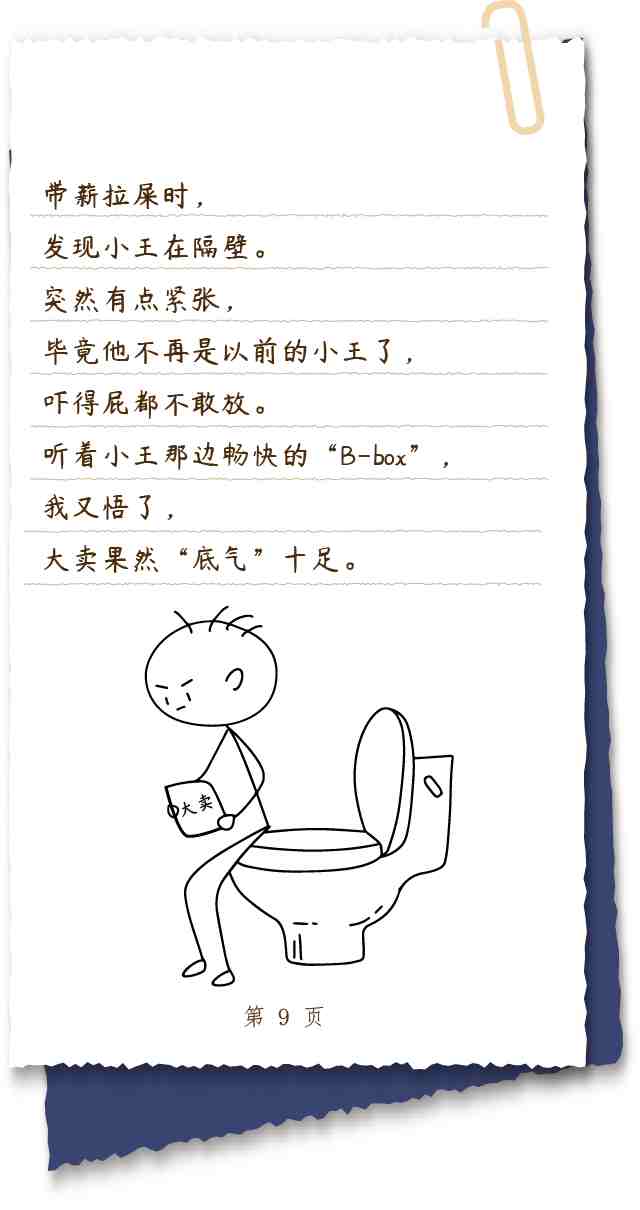 带薪拉屎时，
发现小王在隔壁。
突然有点紧张，
毕竟他不再是以前的小王了，
吓得屁都不敢放。
听着小王那边畅快的“B-box”，
我又悟了，
大卖果然“底气”十足。
大卖
第 9 页